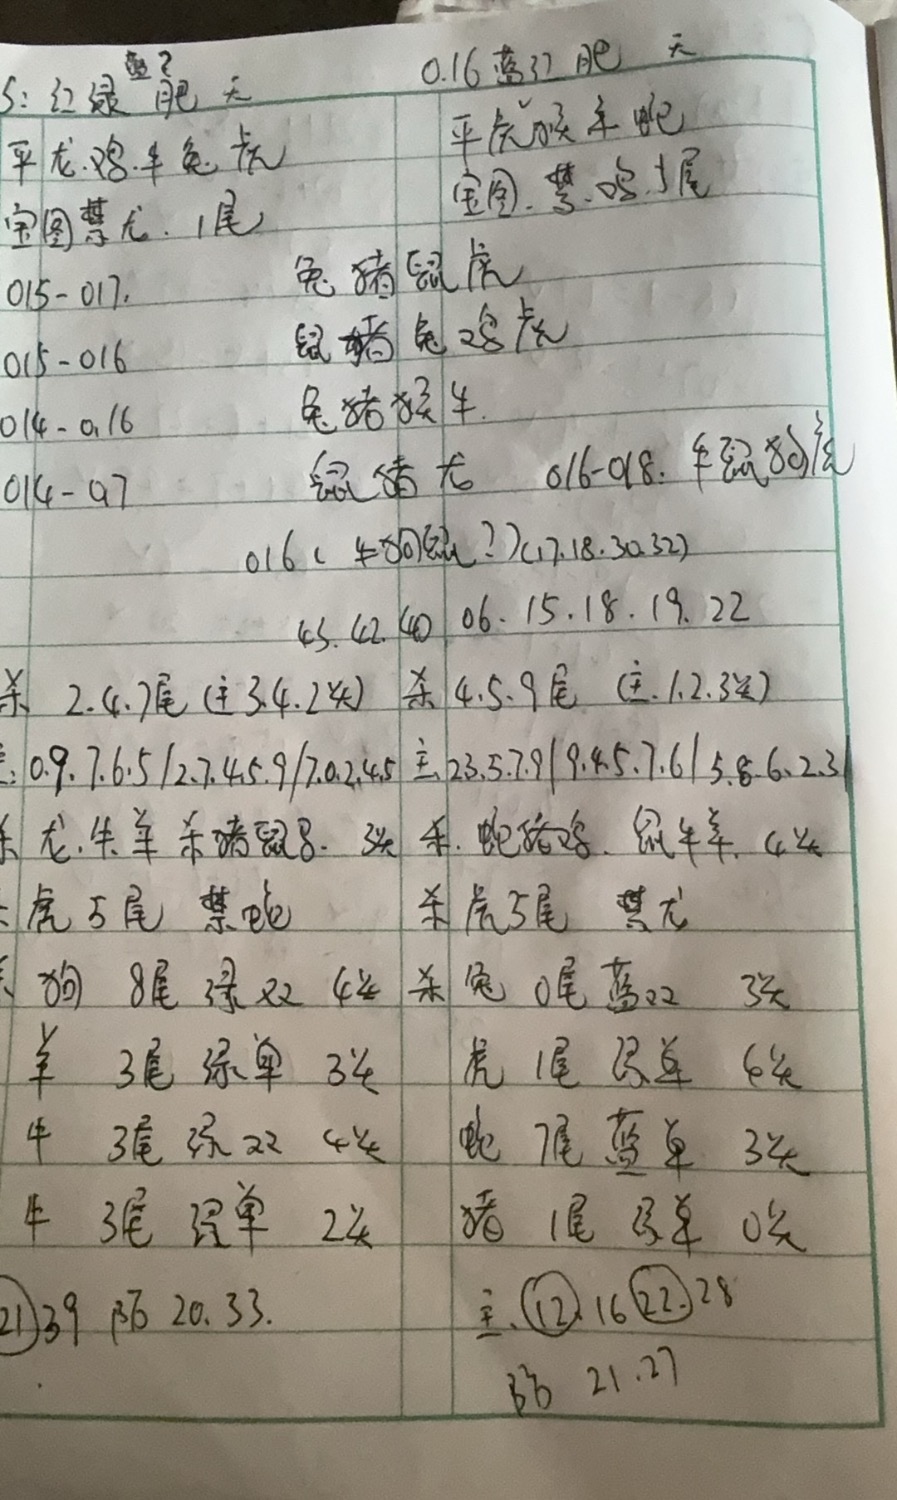 5: 红绿 蓝? 肥 天 0.16 蓝红肥 天
平龙.鸡.羊兔虎 平虎猴羊蛇
宝图禁龙.1尾 宝图.禁.鸡.1尾
015-017. 兔猪鼠虎
015-016 鼠猪兔鸡虎
014-016 兔猪猴牛.
014-017 鼠猪龙 016-018. 牛鼠狗虎
016( 牛狗鼠?)(17.18.30.32)
43.42.40 06.15.18.19.22
杀 2.4.7尾(主3.4.2头) 杀4.5.9尾 (主.1.2.3头)
: 0.9.7.6.5/2.7.4.5.9/7.0.2.4.5 主.23.5.7.9/9.4.5.7.6/5.8.6.2.3/
杀 龙.牛羊 杀猪鼠8. 3头 杀.蛇猪鸡.鼠牛羊.4头
虎5尾 禁蛇 杀虎5尾 禁龙
狗 8尾 绿双 4头 杀兔 0尾 蓝双 3头
羊 3尾 绿单 3头 虎 1尾 绿单 4头
牛 3尾 绿双 4头 蛇 7尾 蓝单 3头
牛 3尾 绿单 2头 猪 1尾 绿单 0头
21 39 防 20.33. 主.12.16 22.28
防 21.27